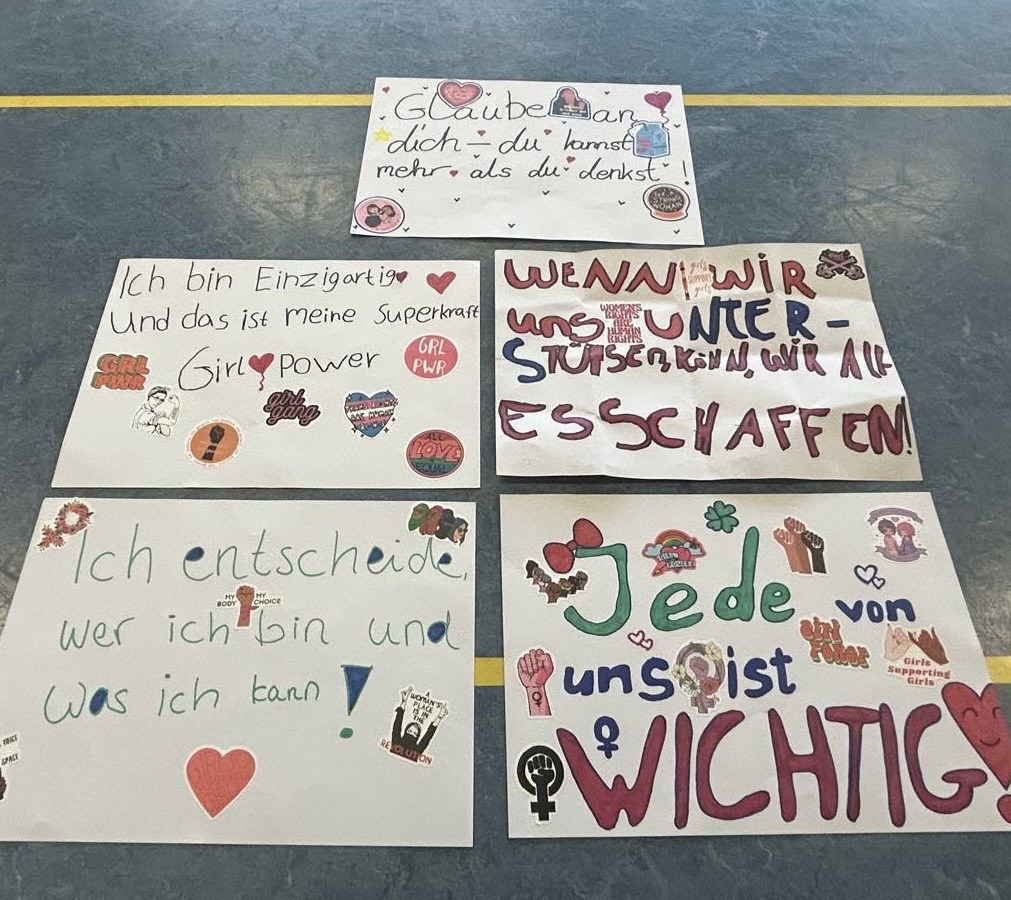 Glaube an
dich – du kannst
mehr als du denkst !
STRONG
WOMAN
Ich bin Einzigartig
Und das ist meine Superkraft
Girl Power
GRL
PWR
GRL
PWR
girl
gang
ALL
LOVE
IS
EQUAL
WENN WIR
girls
SUPPORT
girls
uns UNTER-
WOMEN'S
RIGHTS
ARE
HUMAN
RIGHTS
STÜTSEN, KÖNN, WIR All
ES SCHAFFEN!
Ich entscheide,
MY BODY MY CHOICE
wer ich bin und
was ich kann !
A
WOMAN'S
PLACE
IS IN
THE
REVOLUTION
VOICE
SPACE
Jede von
GIRL
POWER
uns ist
girl
Power
Girls
Supporting
Girls
WICHTIG!